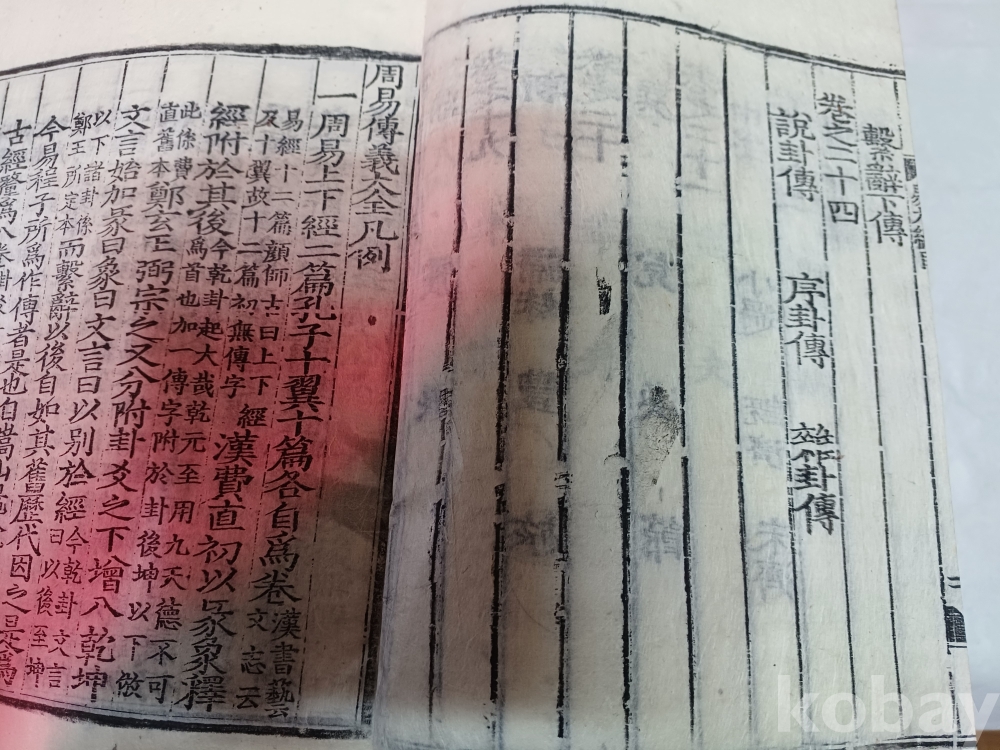 繫辭下傳
卷之二十四
說卦傳 序卦傳 雜卦傳
周易傳義大全凡例
一周易上下經二篇孔子十翼十篇各自爲卷漢書藝文志云
易經十二篇顔師古曰上下經及十翼故十二篇初無傳字漢費直初以彖象釋
經附於其後今乾卦起大哉乾元至用九天德不可爲首也加一傳字附於卦後坤以下倣
此係費直舊本鄭玄王弼宗之又分附卦爻之下增入乾坤
文言始加彖曰象曰文言曰以別於經今乾卦文言曰以後至坤
以下諸卦係鄭王所定本而繫辭以後自如其舊歷代因之是爲
今易程子所爲作傳者是也自嵩山
古經釐爲八卷
kobay